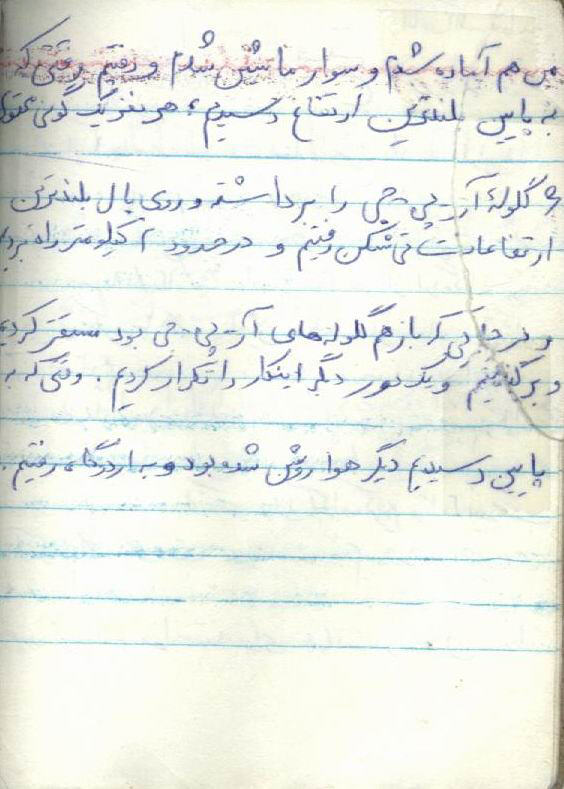 من هم آماده شدم و سوار ماشین شدم و رفتیم وقتی که
به پایین بلندترین ارتفاع رسیدیم، هر نفر یک گونی محتوی
۶ گلولهٔ آر-پی-جی را برداشته و روی یال بلندترین
ارتفاعات رفتیم و در حدود ۲ کیلومتر راه
و در جایی که باز هم گلوله‌های آر-پی-جی بود مستقر کردیم
و برگشتیم و یک دور دیگر اینکار را تکرار کردیم. وقتی که به
پایین رسیدیم دیگر هوا روشن شده بود و به اردوگاه رفتیم.